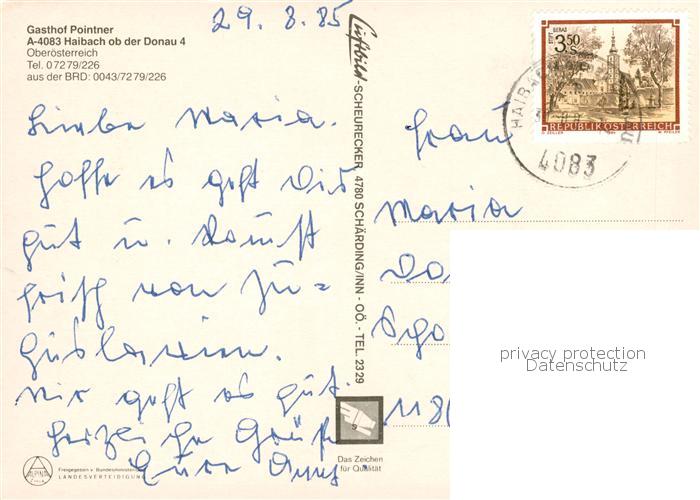 29. 8. 85
Gasthof Pointner
A-4083 Haibach ob der Donau 4
Oberösterreich
Tel. 07279/226
aus der BRD: 0043/7279/226
Liebe Maria.
Hoffe es geht Dir
gut u. kommst
frisch von Ju=
guslawien.
Mir geht es gut.
Herzliche Grüße
Eure
ALPINA
Freigegeben v. Bundesministerium
LANDESVERTEIDIGUNG
Luftbild-SCHEURECKER 4780 SCHÄRDING/INN - OÖ. - TEL. 2329
S
Das Zeichen
für Qualität
STIFT GERAS
3.50 S
REPUBLIK ÖSTERREICH
HAIBACH
4083
Frau
Maria
118
privacy protection
Datenschutz